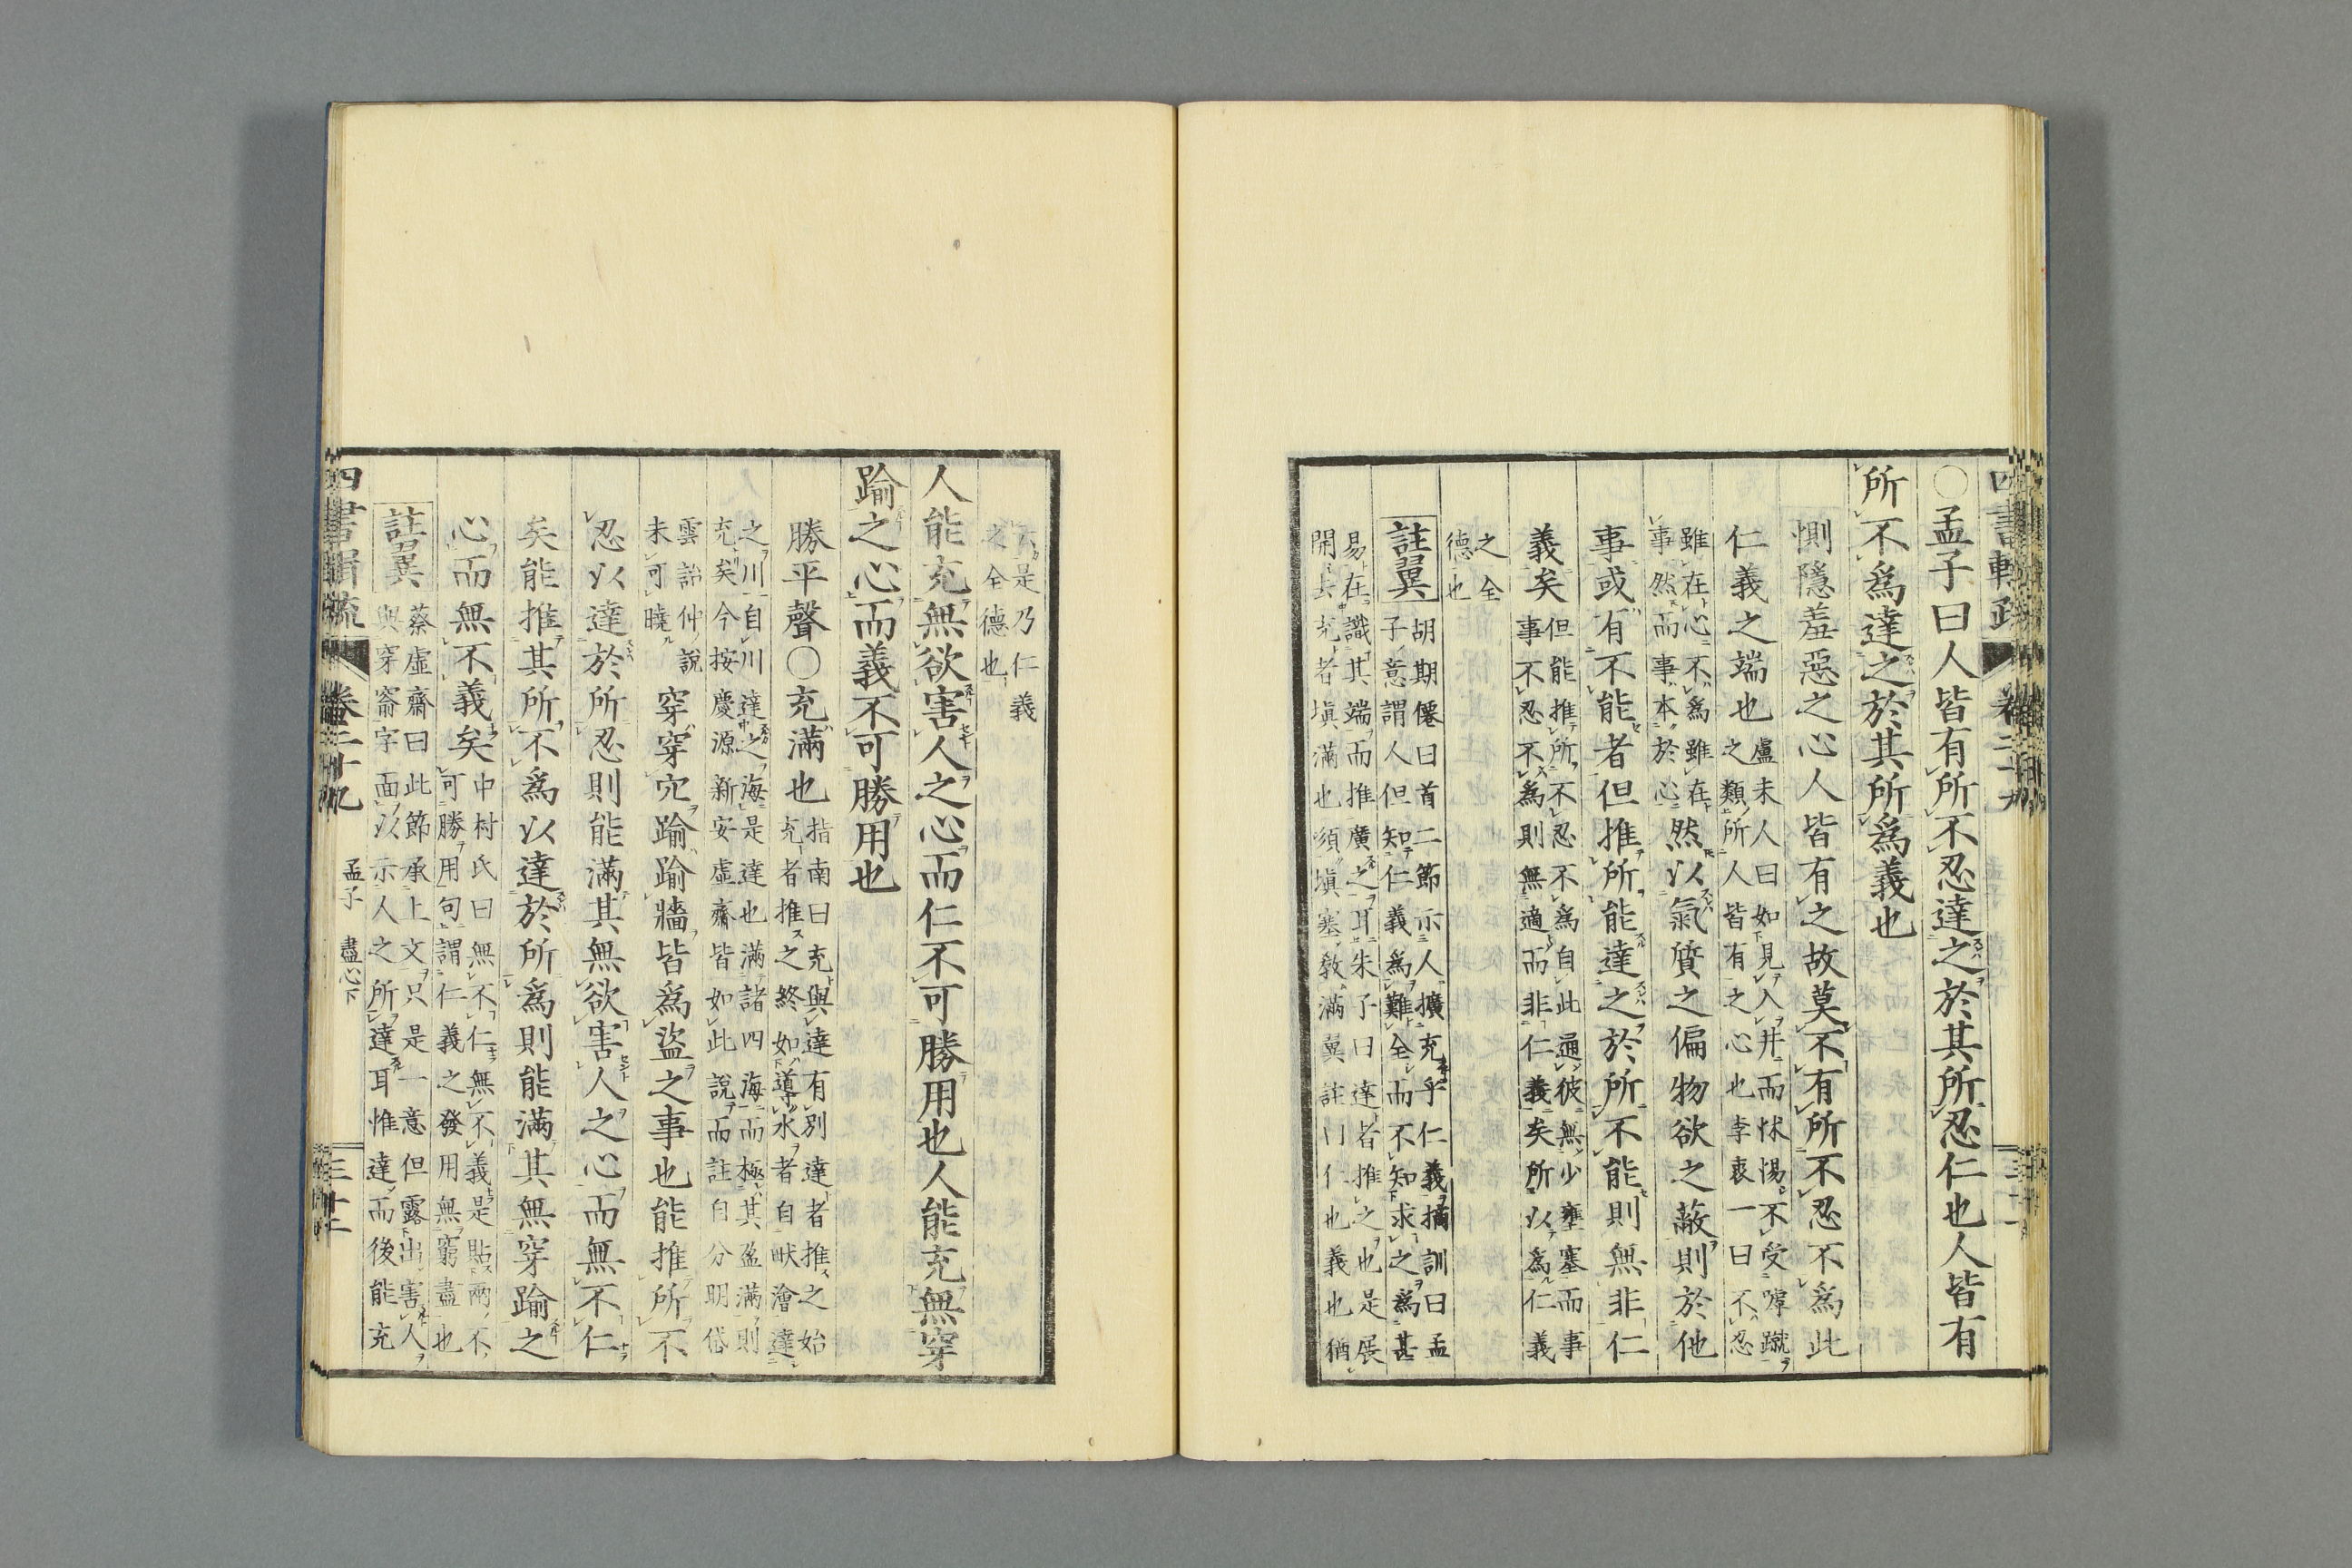 四書輯疏 卷二十九 三十一
○孟子曰人皆有所不忍達之於其所忍仁也人皆有
所不爲達之於其所爲義也
惻隱羞惡之心人皆有之故莫不有所不忍不爲此
仁義之端也 盧未人曰如見入井而怵惕不受嘑蹴
之類所人皆有之心也李衷一曰不忍
雖在心不爲雖在
事然而事本於心 然以氣質之偏物欲之蔽則於他
事或有不能者但推所能達之於所不能則無非仁
義矣 但能推所不忍不爲自此通彼無少壅塞而事
事不忍不爲則無適而非仁義矣所以爲仁義
之全
德也
註翼 胡期僊曰首二節示人擴充乎仁義摘訓曰孟
子意謂人但知仁義爲難全而不知求之爲甚
易在識其端而推廣之耳朱子曰達者推之也是展
開去充者塡滿也須塡塞敎滿翼註曰仁也義也猶
云是乃仁義
之全德也
人能充無欲害人之心而仁不可勝用也人能充無穿
踰之心而義不可勝用也
勝平聲○充滿也 指南曰充與達有別達者推之始
充者推之終如導水者自畎澮達
之川自川達之海是達也滿諸四海而極其盈滿則
充矣今按慶源新安虛齋皆如此說而註自分明岱
雲詒仲說
未可曉 穿穿穴踰踰牆皆爲盜之事也能推所不
忍以達於所忍則能滿其無欲害人之心而無不仁
矣能推其所不爲以達於所爲則能滿其無穿踰之
心而無不義矣 中村氏曰無不仁無不義是貼兩不
可勝用句謂仁義之發用無窮盡也
註翼 蔡虛齋曰此節承上文只是一意但露出害人
與穿窬字面以示人之所達耳惟達而後能充
四書輯疏 卷二十九 孟子 盡心下 三十二